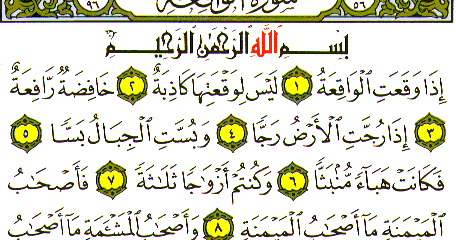 ٥٦ سُورَةُ الْوَاقِعَةِ ٩٦
بِسْمِ اللَّهِ الرَّحْمَٰنِ الرَّحِيمِ
إِذَا وَقَعَتِ ٱلْوَاقِعَةُ ١ لَيْسَ لِوَقْعَتِهَا كَاذِبَةٌ ٢ خَافِضَةٌ رَّافِعَةٌ
٣ إِذَا رُجَّتِ ٱلْأَرْضُ رَجًّا ٤ وَبُسَّتِ ٱلْجِبَالُ بَسًّا ٥
فَكَانَتْ هَبَآءً مُّنۢبَثًّا ٦ وَكُنتُمْ أَزْوَٰجًا ثَلَٰثَةً ٧ فَأَصْحَٰبُ
ٱلْمَيْمَنَةِ مَآ أَصْحَٰبُ ٱلْمَيْمَنَةِ ٨ وَأَصْحَٰبُ ٱلْمَشْـَٔمَةِ مَآ أَصْحَٰبُ